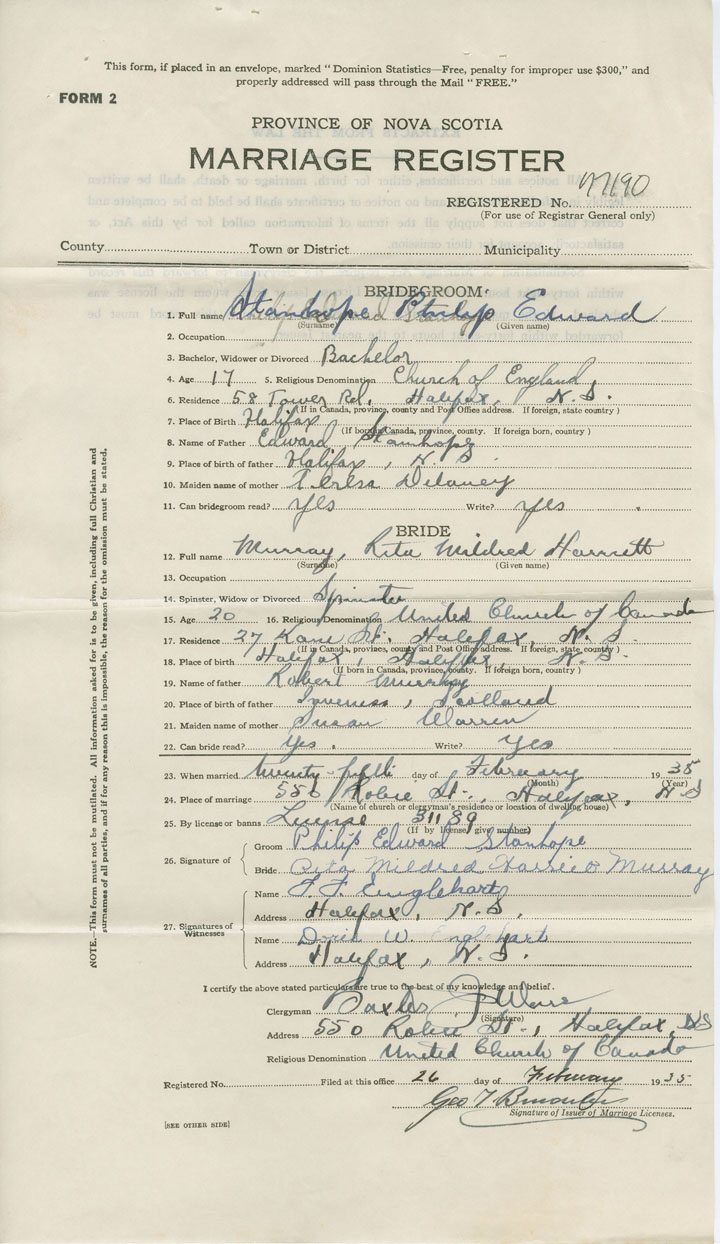 This form, if placed in an envelope, marked "Dominion Statistics—Free, penalty for improper use $300," and
properly addressed will pass through the Mail "FREE."
FORM 2
PROVINCE OF NOVA SCOTIA
MARRIAGE REGISTER
REGISTERED No.
(For use of Registrar General only)
County Town or District Municipality
BRIDEGROOM
1. Full name Stanhope Philip Edward
(Surname) (Given name)
2. Occupation
3. Bachelor, Widower or Divorced Bachelor
4. Age 17 5. Religious Denomination Church of England
6. Residence 58 Tower Rd. Halifax, N.S.
(If in Canada, province, county and Post Office address. If foreign, state country)
7. Place of Birth Halifax
(If born in Canada, province, county. If foreign born, country)
8. Name of Father Edward Stanhope
9. Place of birth of father Halifax, N S
10. Maiden name of mother Teresa Delaney
11. Can bridegroom read? Yes Write? Yes
BRIDE
12. Full name Murray, Rita Mildred Harriett
(Surname) (Given name)
13. Occupation
14. Spinster, Widow or Divorced Spinster
15. Age 20 16. Religious Denomination United Church of Canada
17. Residence 27 Kane St. Halifax, N.S.
(If in Canada, province, county and Post Office address. If foreign, state country)
18. Place of birth Halifax, Halifax, N.S.
(If born in Canada, province, county. If foreign born, country)
19. Name of father Robert Murray
20. Place of birth of father Inverness, Scotland
21. Maiden name of mother Susan Warren
22. Can bride read? Yes. Write? Yes
23. When married twenty-fifth day of February 1935
(Month) (Year)
24. Place of marriage 550 Robie St., Halifax, N S
(Name of church or clergyman's residence or location of dwelling house)
25. By license or banns License 31189
(If by license, give number)
26. Signature of
Groom Philip Edward Stanhope
Bride Rita Mildred Harriett Murray
27. Signatures of Witnesses
Name F. F. Englehart
Address Halifax, N.S.
Name Doris W. Englehart
Address Halifax, N.S.
I certify the above stated particulars are true to the best of my knowledge and belief.
Clergyman
(Signature)
Address 550 Robie St., Halifax, NS
Religious Denomination United Church of Canada
Registered No. Filed at this office 26 day of February 1935
Geo T.
Signature of Issuer of Marriage Licenses.
[SEE OTHER SIDE]
NOTE.—This form must not be mutilated. All information asked for is to be given, including full Christian and
surnames of all parties, and if for any reason this is impossible, the reason for the omission must be stated.